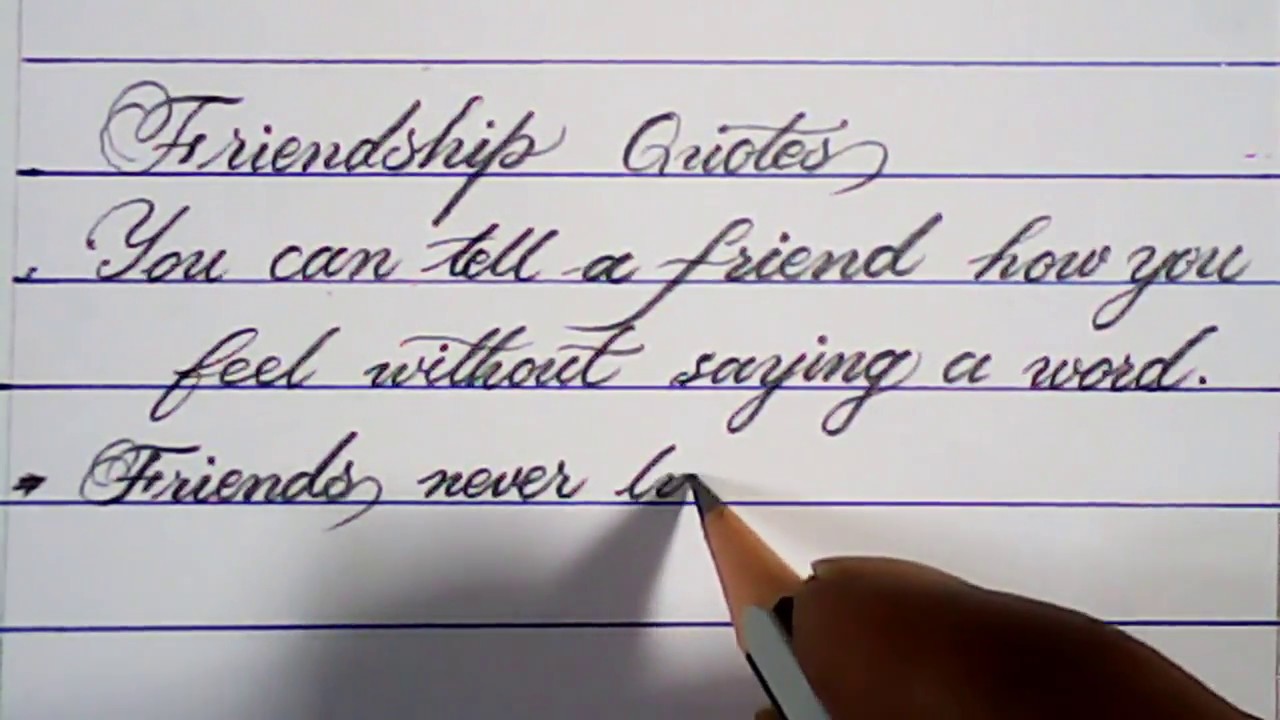 Friendship Quotes
You can tell a friend how you
feel without saying a word.
Friends never